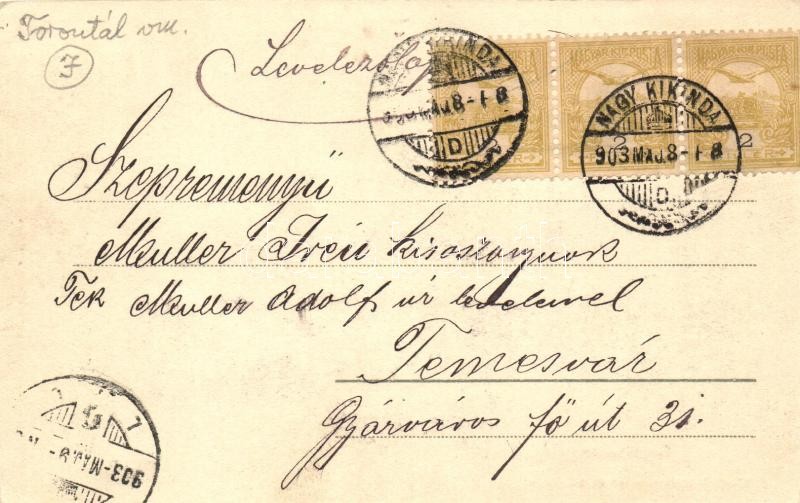 Torontál vm.
J
Levelezőlap
MAGYAR KIR. POSTA
MAGYAR KIR. POSTA
NAGY KIKINDA
903 MÁJ. 8 - 1 8
D
NAGY KIKINDA
903 MÁJ. 8 - 1 8
D
2
2
Szepreményű
Muller Irén kisasszonynak
Tek Muller Adolf úr levelével
Temesvár
Gyárváros fő út 31.
903 - MÁJ. 9 -